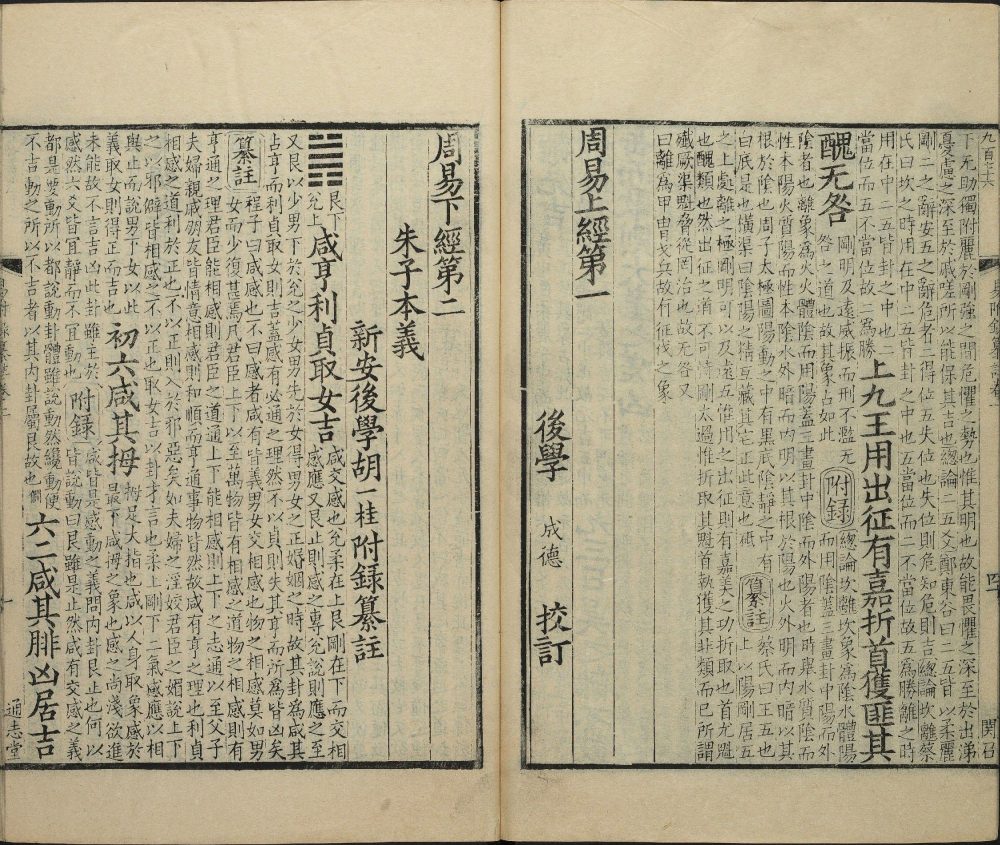 下无助獨附麗於剛強之間危懼之勢也惟其明也故能畏懼之深至於出涕
憂慮之深至於戚嗟所以能保其吉也總論二五爻鄭東谷曰二五皆以柔麗
剛二之辭安五之辭危者二得位五失位也失位則危知危則吉總論坎離蔡
氏曰坎之時用在中二五皆卦之中也五當位而二不當位故五為勝離之時
用在中二五皆卦之中也二
當位而五不當位故二為勝
上九王用出征有嘉折首獲匪其
醜无咎
剛明及遠威振而刑不濫无
咎之道也故其象占如此
附錄
總論坎離坎象為陰水體陽
而用陰蓋三畫卦中陽而外
陰者也離象為火體陰而用陽蓋三畫卦中陰而外陽者也
性本陽火質陽而性本陰水外暗而內明以其根於陽也火外明而內暗以其
根於陰也周子太極圖陽動之中有黑底陰靜之中有
曰底是也橫渠曰陰陽之精互藏其宅正此意也
纂註
蔡氏曰王五也
上以陽剛居五
之上處離之極剛明可以及遠五惟用之出征則有嘉美之功折取也首尤魁
也醜類也然出征之道不可恃剛太過惟折取其魁首執獲其非類而已所謂
殲厥渠魁脅從罔治也故无咎又
曰離為甲冑戈兵故有征伐之象
周易上經第一
後學 成德 挍訂
周易下經第二
朱子本義
新安後學胡一桂附錄纂註
艮下
兌上
咸亨利貞取女吉
咸交感也兌柔在上艮剛在下而交相
感應又艮止則感之專兌說則應之至
又艮以少男下於兌之少女男先於女得男女之正婚姻之時故其卦為咸其
占亨而利貞取女則吉蓋感有必通之理然不以貞則失其亨而所為皆凶矣
纂註
程子曰咸感也不曰感者咸有皆義男女交相感也物之相感莫如男
女而少復甚焉凡君臣上下以至萬物皆有相感之道物之相感則有
亨通之理君臣能相感則君臣之道通上下能相感則上下之志通以至父子
夫婦親戚朋友皆情意相感則和順而亨通事物皆然故咸有亨之理也利貞
相感之道利於正也不以正則入於邪惡矣如夫婦之淫姣君臣之媚說上下
之以邪僻皆相感之不以正也取女吉以卦才言也柔上剛下二氣感應以相
與止而說男下女也以此
義取女則得正而吉也
初六咸其拇
拇足大指也咸以人身取象感於
最下咸拇之象也感之尚淺欲進
未能故不言吉凶此卦雖主於
感然六爻皆宜靜而不宜動也
附錄
咸皆是感動之義問內卦艮止也何以
皆說動曰艮雖是止然咸有交感之義
都是要動所以都說動卦體雖說動然纔動便
不吉動之所以不吉者以其內卦屬艮故也
六二咸其腓凶居吉
通志堂